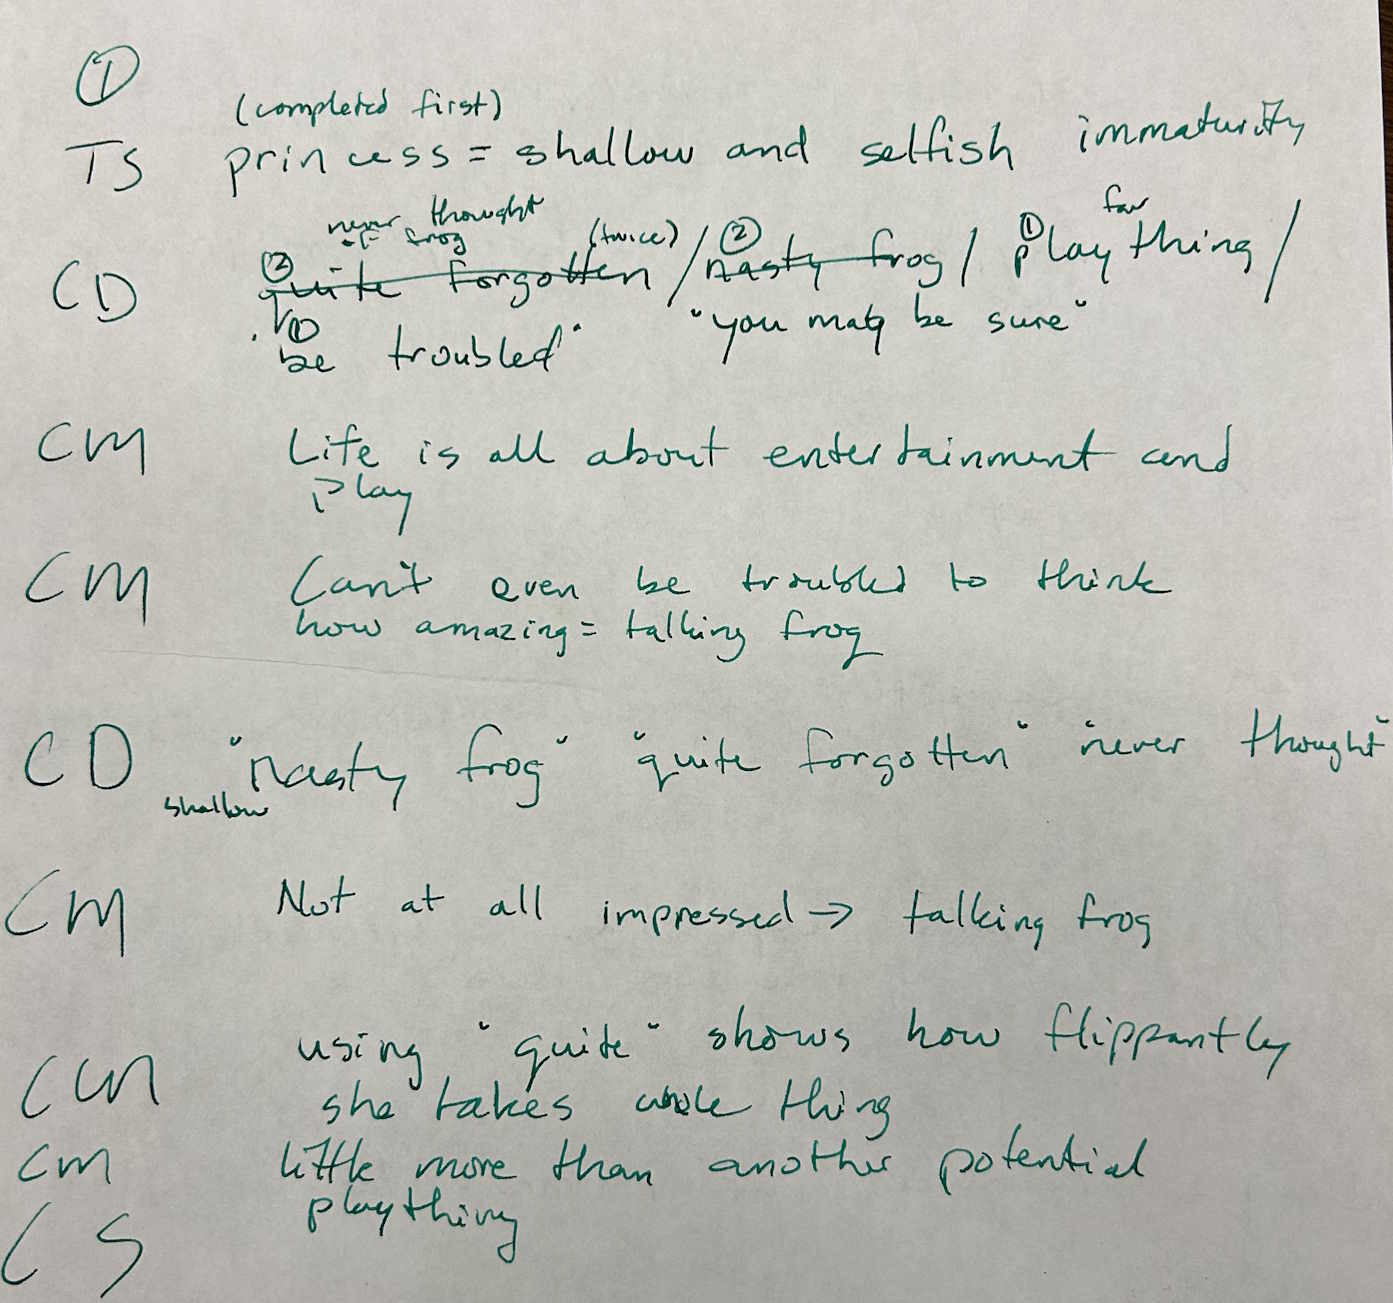 ①
(completed first)
TS princess = shallow and selfish immaturity
never thought
of frog (twice) ② ① fav
CD ② quite forgotten / nasty frog / plaything /
① "be troubled" "you may be sure"
CM Life is all about entertainment and
play
CM Can't even be troubled to think
how amazing = talking frog
CD "nasty frog" "quite forgotten" "never thought"
shallow
CM Not at all impressed → talking frog
CM using "quite" shows how flippantly
she takes whole thing
CM little more than another potential
plaything
CS